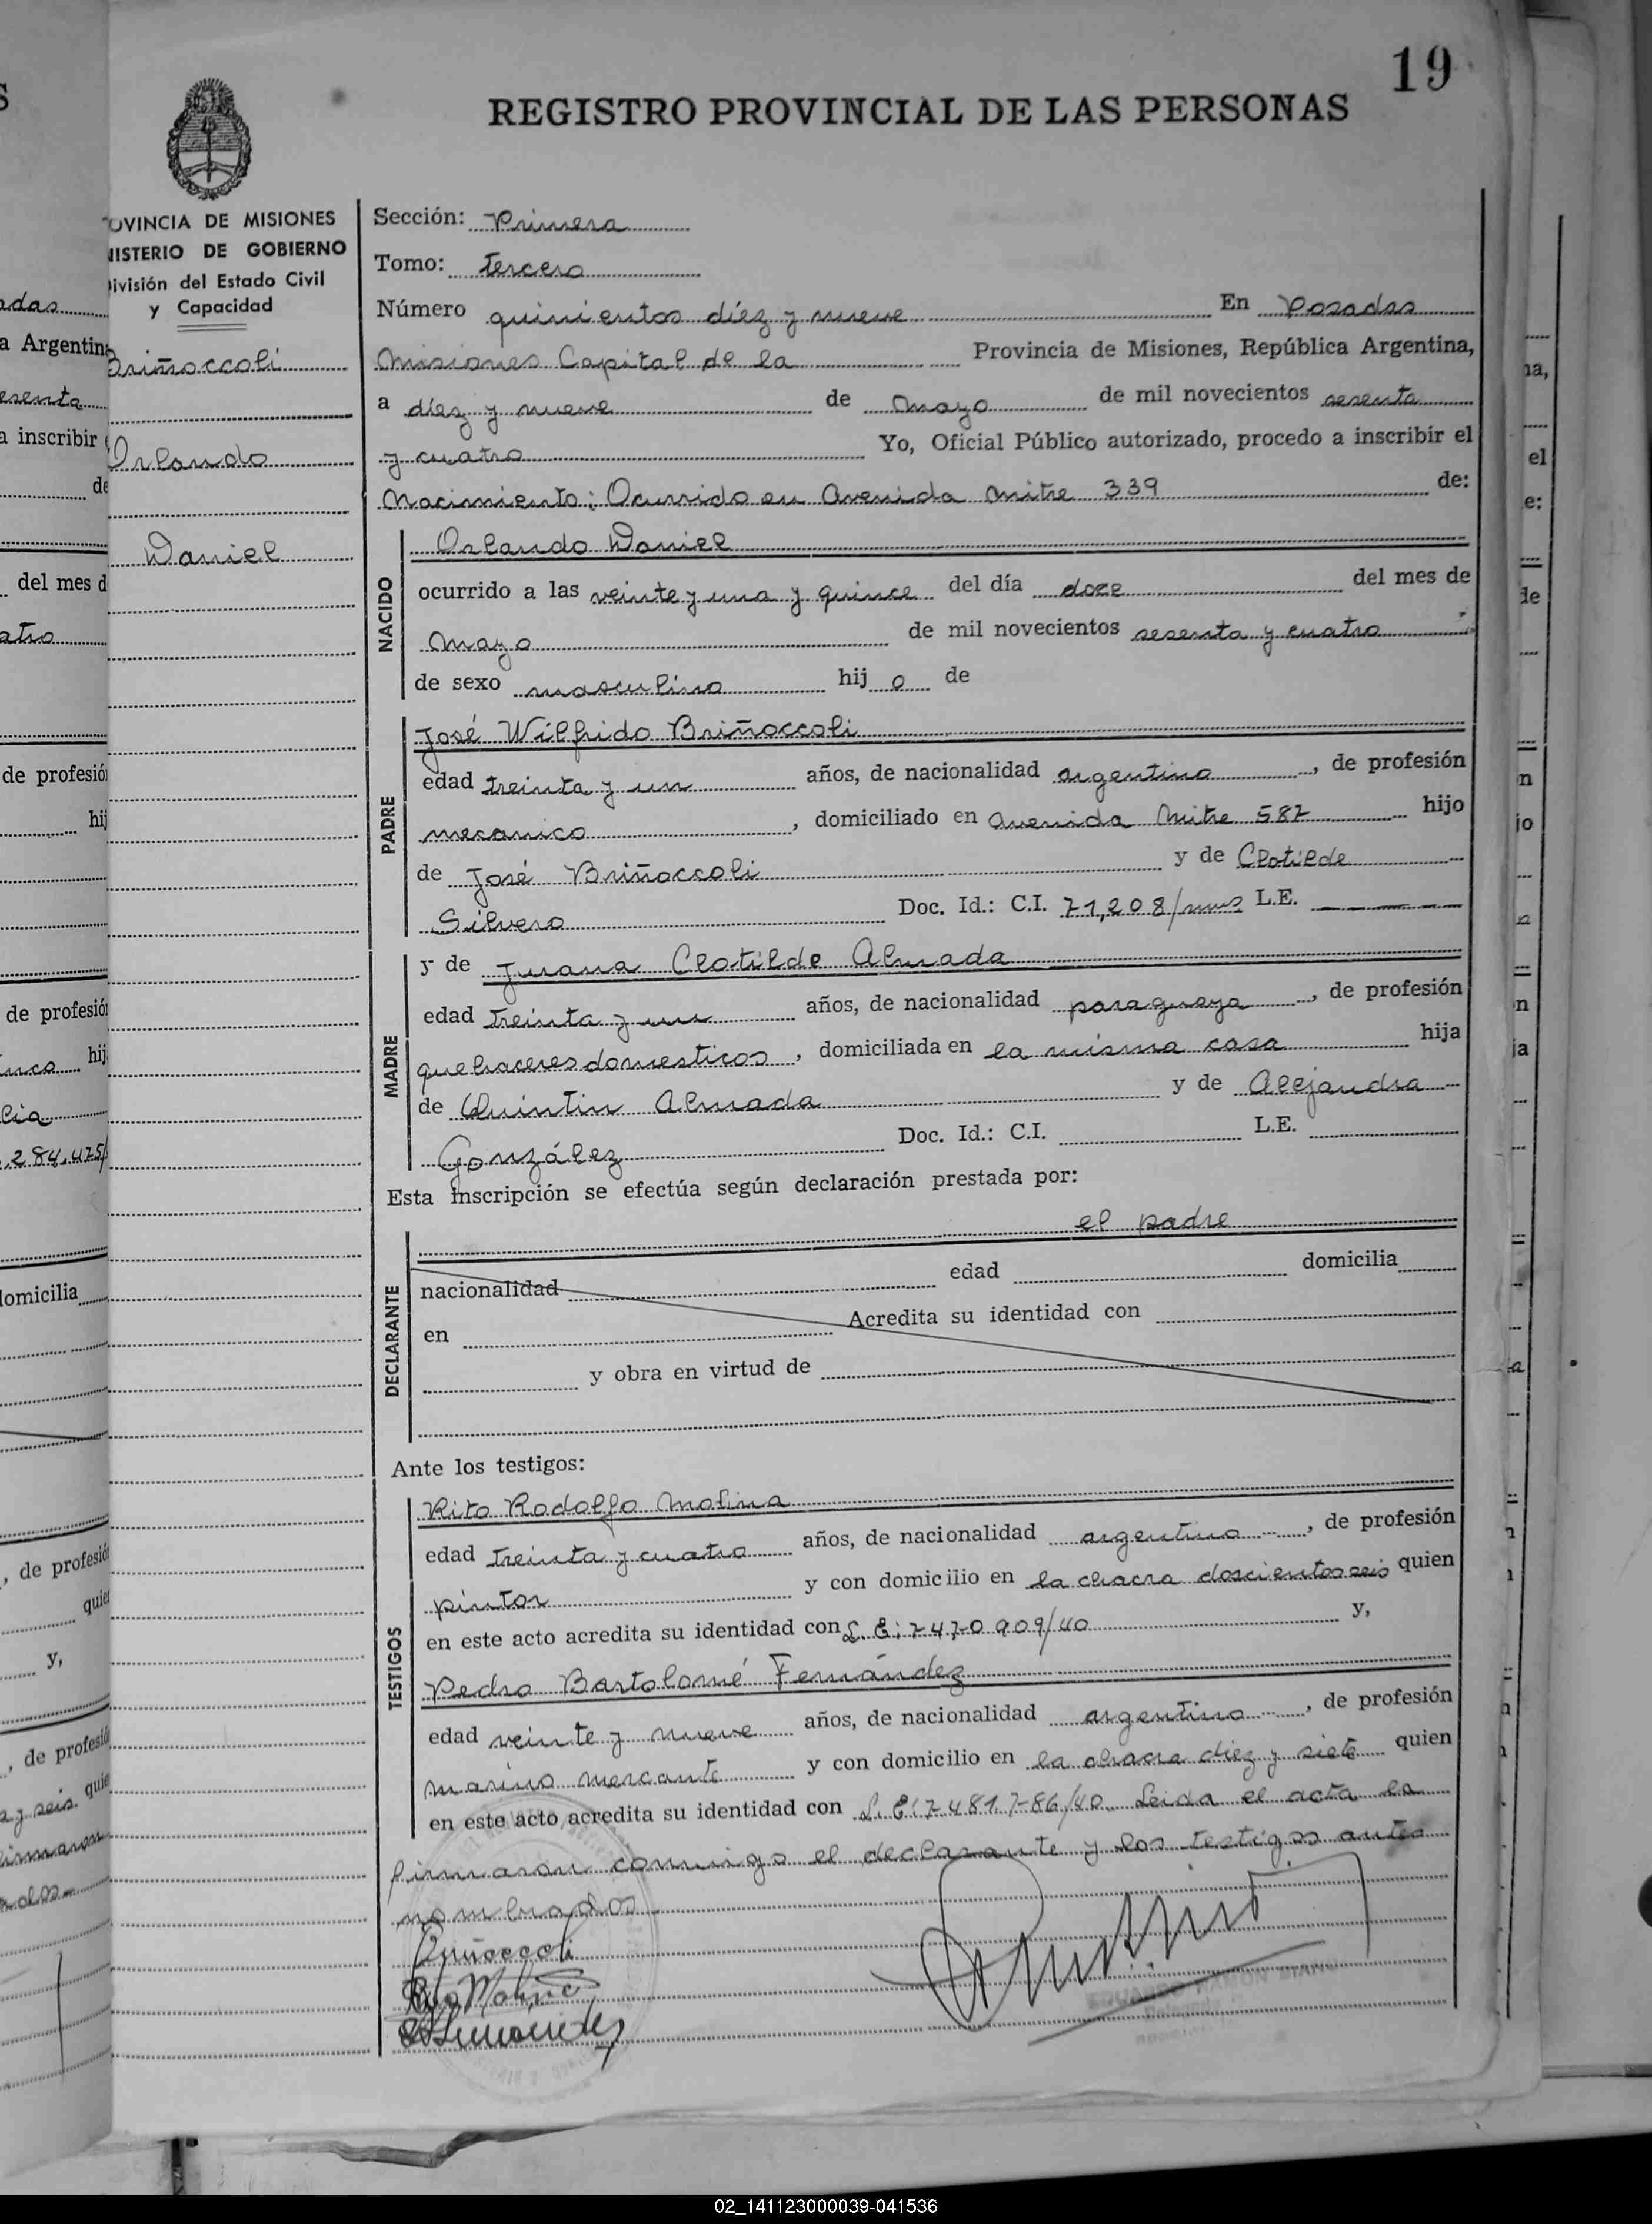 19
REGISTRO PROVINCIAL DE LAS PERSONAS
OVINCIA DE MISIONES
NISTERIO DE GOBIERNO
División del Estado Civil
y Capacidad
Briñoccoli
Orlando
Daniel
Sección: Primera
Tomo: tercero
Número quinientos diéz y nueve En Posadas
Misiones Capital de la Provincia de Misiones, República Argentina,
a diéz y nueve de Mayo de mil novecientos sesenta
y cuatro Yo, Oficial Público autorizado, procedo a inscribir el
Nacimiento: Ocurrido en Avenida Mitre 339 de:
NACIDO
Orlando Daniel
ocurrido a las veinte y una y quince del día doce del mes de
Mayo de mil novecientos sesenta y cuatro
de sexo masculino hij o de
PADRE
José Wilfrido Briñoccoli
edad treinta y un años, de nacionalidad argentino, de profesión
mecanico, domiciliado en Avenida Mitre 587 hijo
de José Briñoccoli y de Clotilde
Silvero Doc. Id.: C.I. 71,208/mnes L.E.
MADRE
y de Juana Clotilde Almada
edad treinta y un años, de nacionalidad paraguaya, de profesión
quehaceres domesticos, domiciliada en la misma casa hija
de Quintin Almada y de Alejandra
González Doc. Id.: C.I. L.E.
Esta inscripción se efectúa según declaración prestada por:
el padre
DECLARANTE
nacionalidad edad domicilia
en Acredita su identidad con
y obra en virtud de
Ante los testigos:
TESTIGOS
Rito Rodolfo Molina
edad treinta y cuatro años, de nacionalidad argentino, de profesión
pintor y con domicilio en la chacra doscientos seis quien
en este acto acredita su identidad con L.E: 7470909/40 y,
Pedro Bartolomé Fernández
edad veinte y nueve años, de nacionalidad argentino, de profesión
marino mercante y con domicilio en la chacra diez y siete quien
en este acto acredita su identidad con L.E: 7481786/40 Leida el acta la
firmaron conmigo el declarante y los testigos antes
nombrados
Briñoccoli
Rito Molina
Fernández
02_141123000039-041536